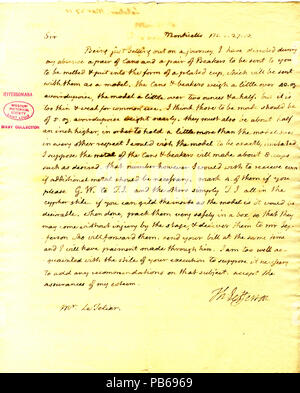 Sir
Monticello Mar. 27. 10.
Being just setting out on a journey, I have directed during
my absence a pair of Cans and a pair of Beakers to be sent to you
to be melted & put into the form of a plated cup, which will be sent
with them as a model. The Cans & beakers weigh a little over 40. oz
avoirdupoise, the model a little over two ounces & a half. but it is
too thin & weak for common use. I think those to be made should be
of 5. oz. avoirdupoise weight exactly. they must also be about half
an inch higher, in order to hold a little more than the model. but
in every other respect I wish the model to be exactly imitated.
I suppose the metal of the Cans & beakers will make about 8 cups
such as desired. that number however I wish to receive even
if additional metal should be necessary. mark 4 of them if you
please G. W. to T. J. and the others simply T. J. all in the
cypher stile. if you can gild the insides as the model is it would be
desirable. when done, pack them very safely in a box so that they
may come without injury by the stage, & deliver them to mr Jef-
ferson who will forward them. send your bill at the same time
and I will have paiment made through him. I am too well ac-
quainted with the stile of your execution to suppose it necessary
to add any recommendations on that subject. accept the
assurances of my esteem.
Th Jefferson
Mr. Le Tellier.
JEFFERSONIANA
MISSOURI
HISTORICAL
SOCIETY
BIXBY COLLECTION
alamy
alamy
Image ID: PB6969
www.alamy.com